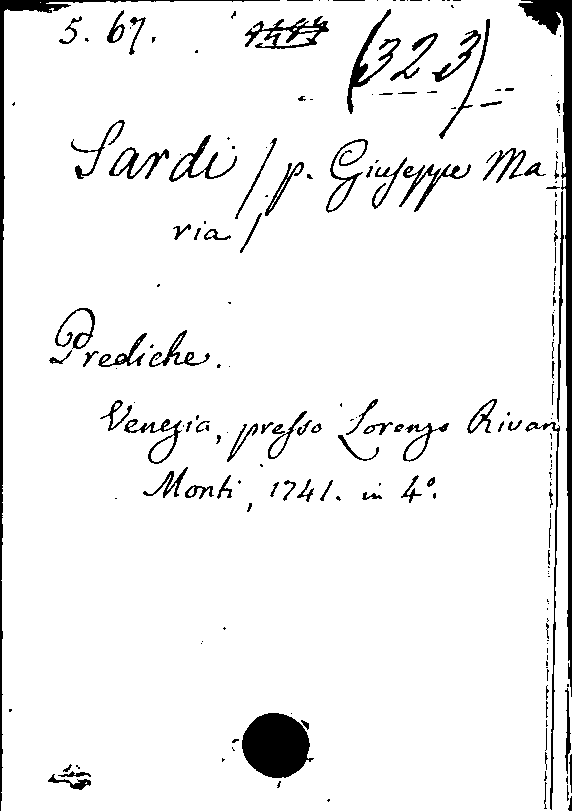 5. 67. (323)
Sardi / p. Giuseppe Ma
ria /
Prediche.
Venezia, presso Lorenzo Rivan
Monti, 1741. in 4°.